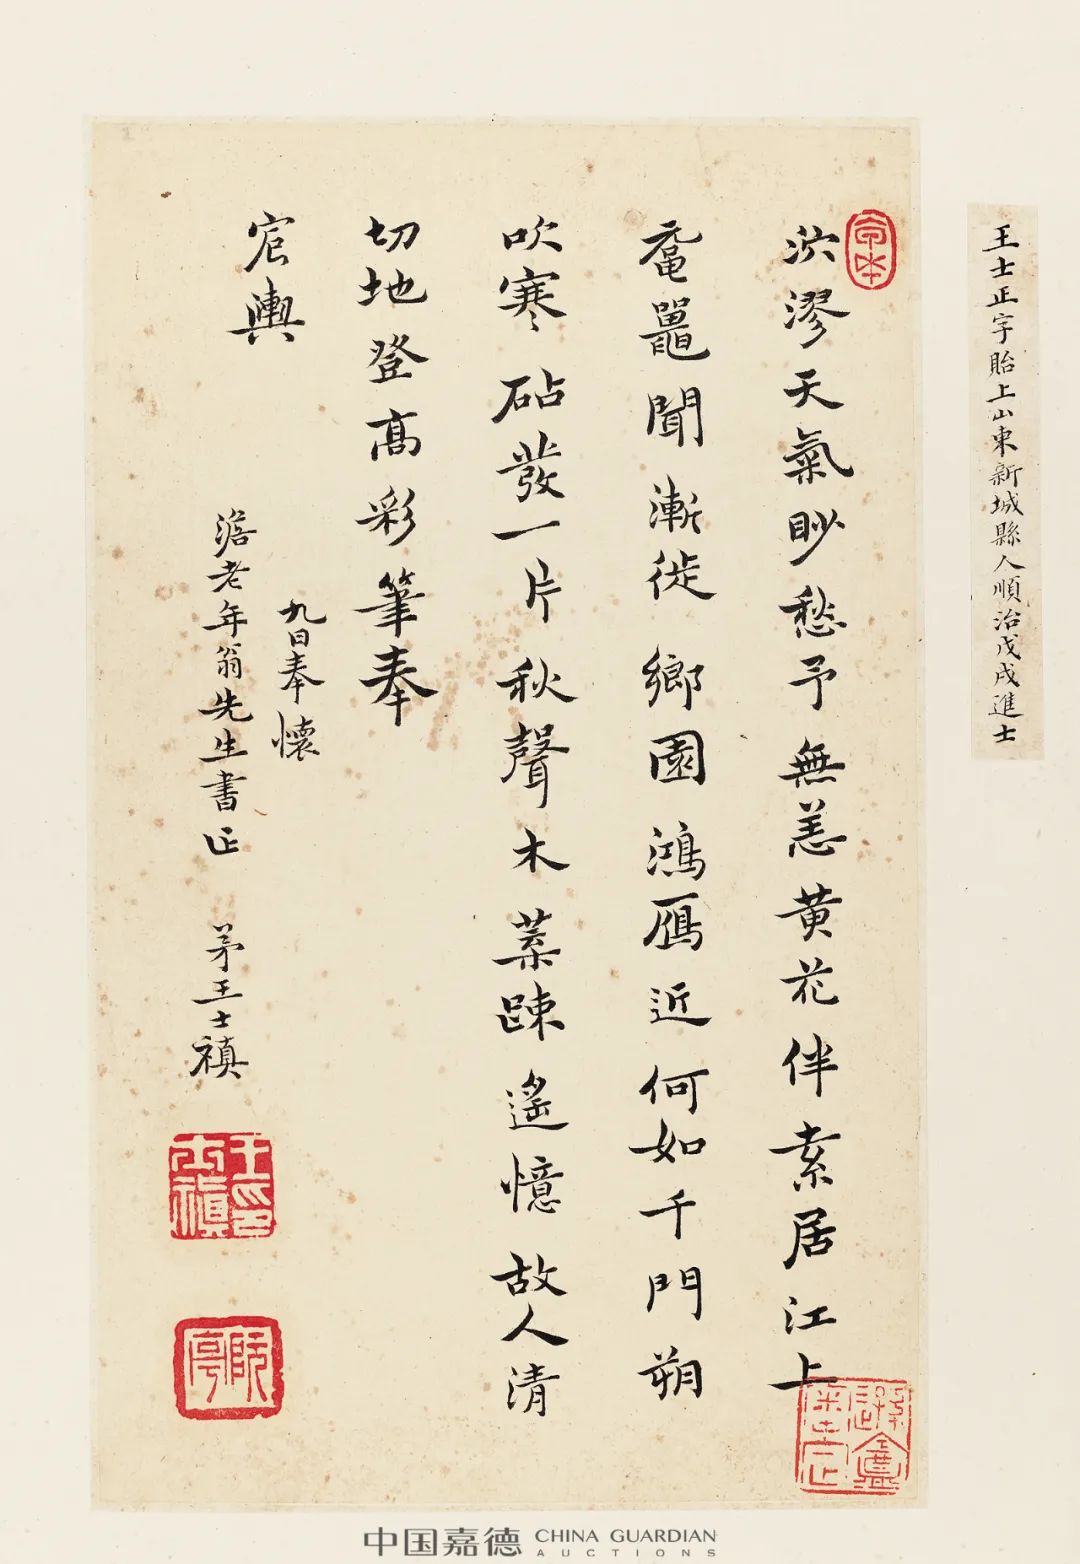 王士正字貽上山東新城縣人順治戊戌進士
泬漻天氣眇愁予無恙黃花伴索居江上
黿鼉聞漸徙鄉園鴻雁近何如千門朔
吹寒砧發一片秋聲木葉踈遙憶故人清
切地登高彩筆奉
宸輿
九日奉懷
澹老年翁先生書正 弟王士禛
王士禛印
阮亭
中国嘉德 CHINA GUARDIAN
AUCTIONS